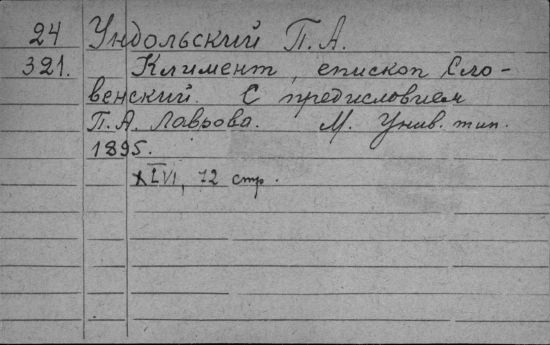 24 Ундольский П.А.
321. Климент, епископ Сло-
венский. С предисловием
П.А. Лаврова. М. Унив. тип.
1895.
XLVI, 72 стр.